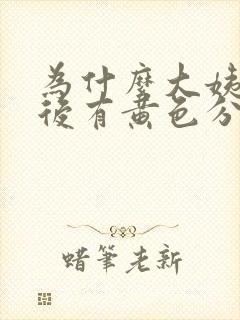 為什麼大姨
後有黄色分
蜡筆老新